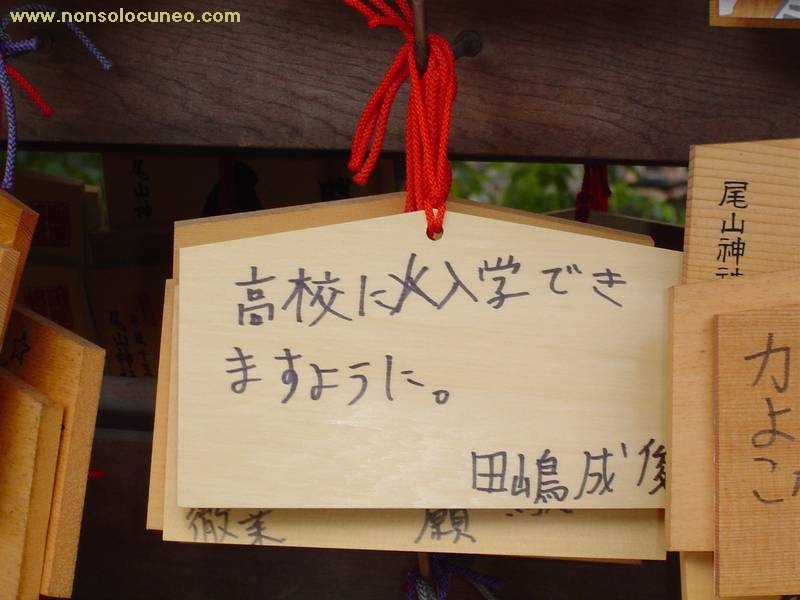 www.nonsolocuneo.com
高校に入学でき
ますように。
田嶋成俊
尾山神社
尾山神
尾山神
力よこ
願